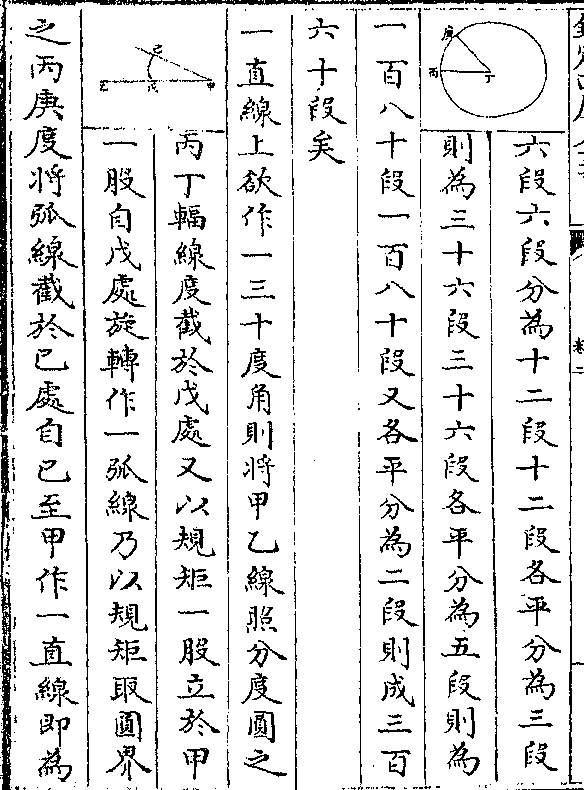 六段六段分為十二段十二段各平分為三段
則為三十六段三十六段各平分為五段則為
一百八十段一百八十段又各平分為二段則成三百
六十段矣
一直線上欲作一三十度角則將甲乙線照分度圓之
丙丁輻線度截於戊處又以規矩一股立於甲
一股自戊處旋轉作一弧線乃以規矩取圓界
之丙庚度將弧線截於已處自已至甲作一直線即為
庚
丙
丁
已
乙
戊
甲
卷二